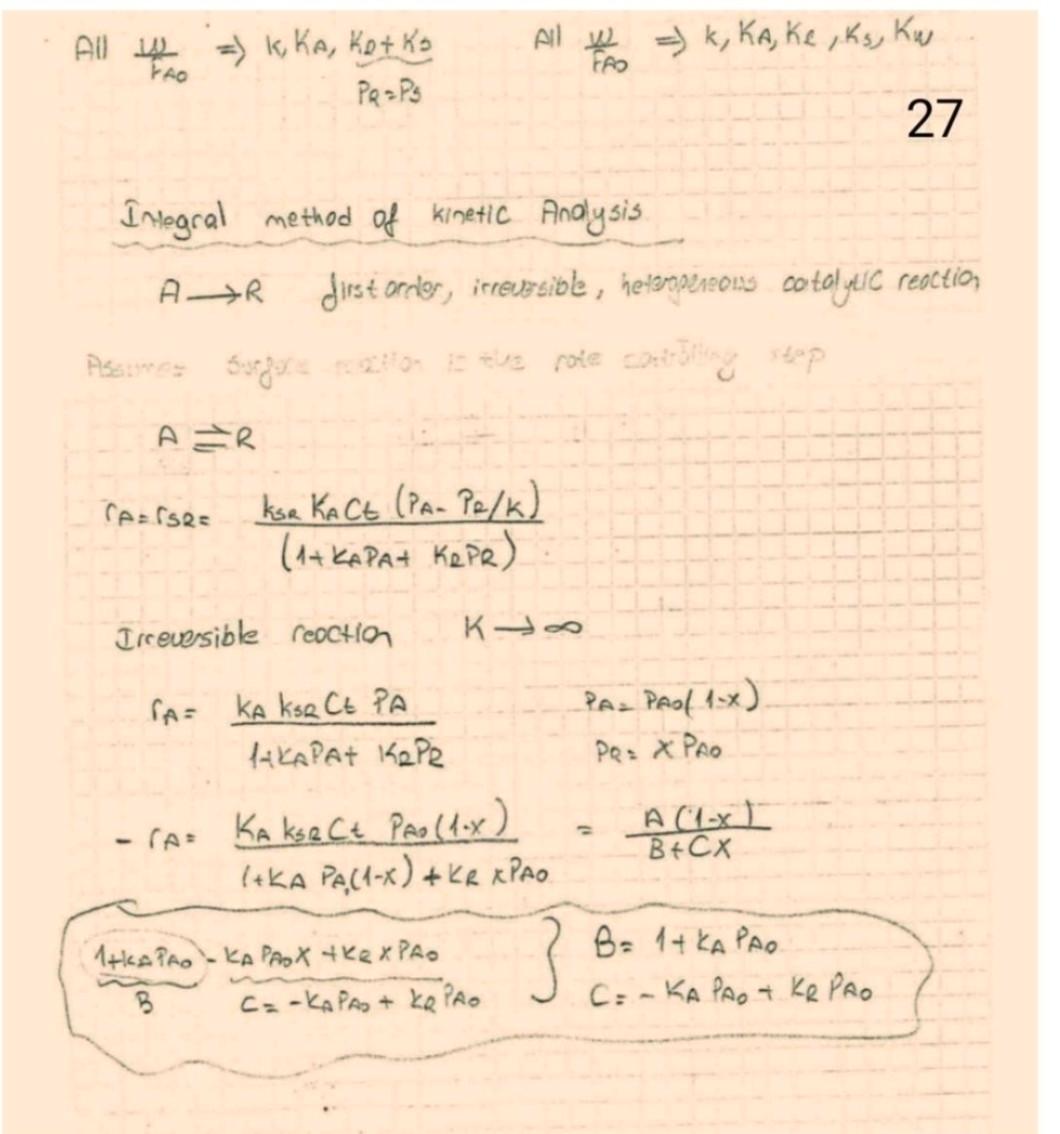 All W/FAO => k, KA, KR + KS All W/FAO => k, KA, KR, KS, KW
PR = PS
27
Integral method of kinetic Analysis
A → R first order, irreversible, heterogeneous catalytic reaction
Assume: Surface reaction is the rate controlling step
A ⇌ R
rA = rSR = kSR KA Ct (PA - PR/K) / (1 + KA PA + KR PR)
Irreversible reaction K → ∞
rA = KA kSR Ct PA / 1 + KA PA + KR PR PA = PAO (1-x)
PR = x PAO
- rA = KA kSR Ct PAO (1-x) / 1 + KA PA (1-x) + KR x PAO = A (1-x) / B + Cx
1 + KA PAO - KA PAO x + KR x PAO } B = 1 + KA PAO
B C = - KA PAO + KR PAO C = - KA PAO + KR PAO